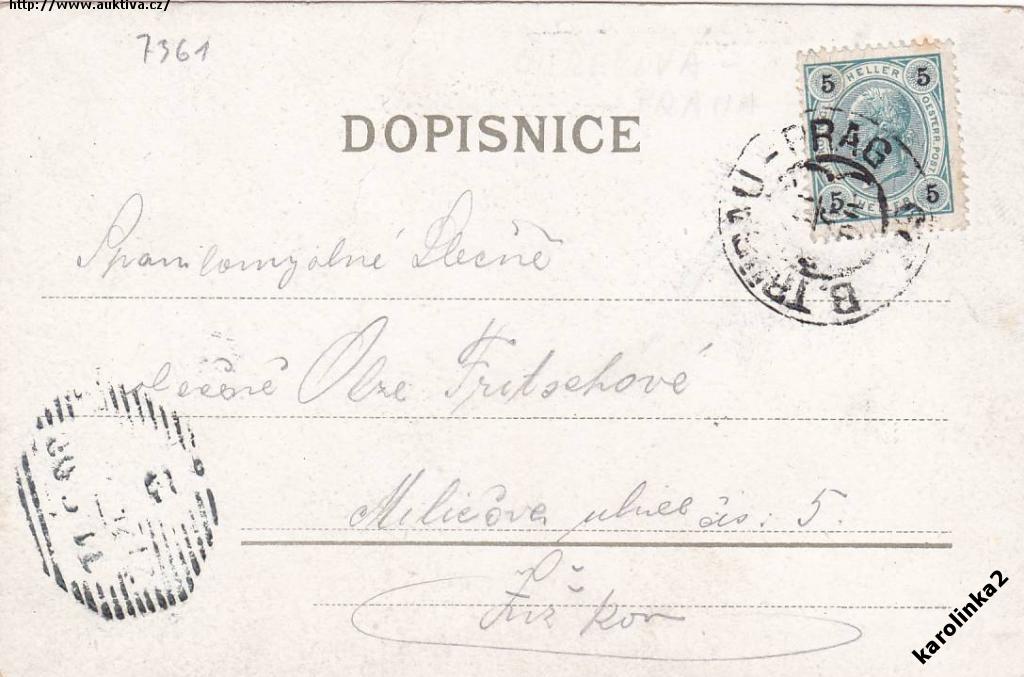 http://www.auktiva.cz/
7361
DOPISNICE
5 HELLER 5
OESTERR. POST
5 HELLER 5
B. TRÜBAU - PRAG
Slečně
slečně Olze Fritschové
Miličova ulice čís: 5.
Žižkov
karolinka2